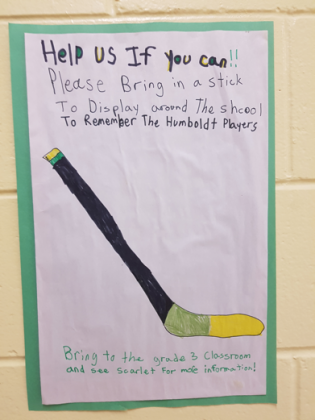 Help US If you can!!
Please Bring in a stick
To Display around The shcool
To Remember The Humboldt Players
Bring to the grade 3 Classroom
and see Scarlet For more information!